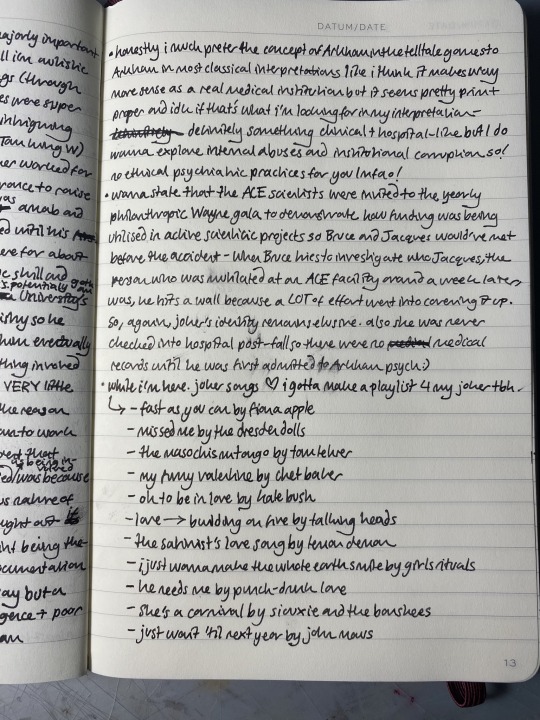 DATUM/DATE
ajorly important
ll i'm autistic
gs (through
es were super
inhigning
Tam Lung W)
er worked for
rance to raise
was amab and
ed until his
ere for about
c skill and
s, potentially goth
University's
ishy so he
ham eventually
thing involved
VERY little
the reason
on to work
rest that
as being in-
ed/was because
us nature of
ught out
ht being the
ocumentation
ay but a
gence + poor
am
• honestly i much prefer the concept of Arkham in the telltale games to
Arkham in most classical interpretations like i think it makes way
more sense as a real medical institution but it seems pretty prim +
proper and idk if that's what i'm looking for in my interpretation -
definitely something clinical + hospital-like but I do
wanna explore internal abuses and institutional corruption so!
no ethical psychiatric practices for you lmfao!
• wanna state that the ACE scientists were invited to the yearly
philanthropic Wayne gala to demonstrate how funding was being
utilised in active scientific projects so Bruce and Jacques would've met
before the accident - when Bruce tries to investigate who Jacques, the
person who was mutilated at an ACE facility around a week later,
was, he hits a wall because a LOT of effort went into covering it up.
so, again, joker's identity remains elusive. also she was never
checked into hospital post-fall so there were no medical
records until he was first admitted to Arkham psych :)
• while i'm here. joker songs ♡ i gotta make a playlist 4 my joker tbh.
↳ - fast as you can by fiona apple
- missed me by the dresden dolls
- the masochism tango by tom lehrer
- my funny valentine by chet baker
- oh to be in love by kate bush
- love → building on fire by talking heads
- the satanist's love song by lemon demon
- i just wanna make the whole earth smile by girls rituals
- he needs me by punch-drunk love
- she's a carnival by siouxie and the banshees
- just wait 'til next year by john maus
13